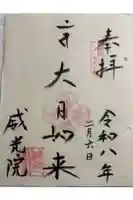 奉拝
令和八年
二月六日
大日如来
威光院